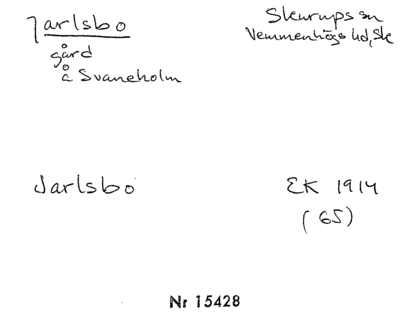 Jarlsbo
gård
å Svaneholm
Skurups sn
Vemmenhögs hd, Sk
Jarlsbo
EK 1914
(65)
Nr 15428